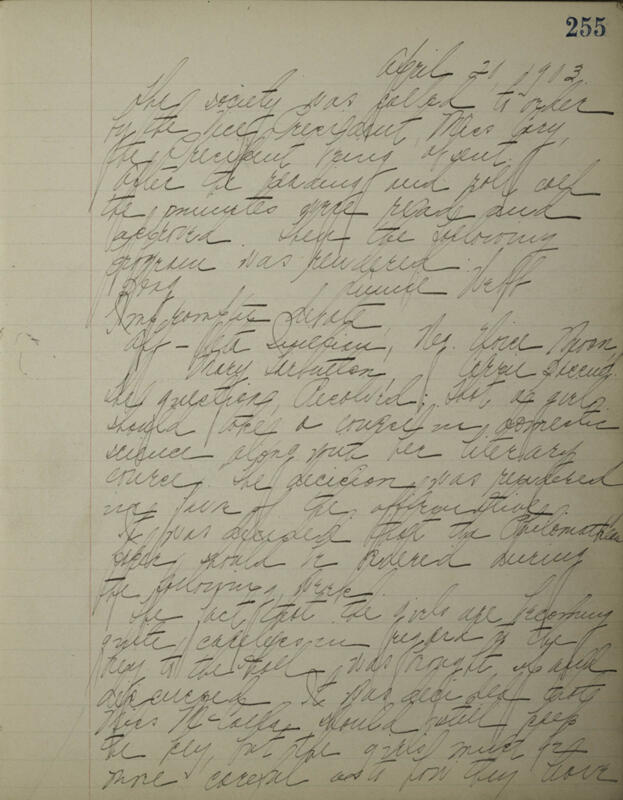 255
April 21, 1903.
The society was called to order
by the Vice-President, Miss Cory,
the President being absent.
After the reading and roll call
the minutes were read and
approved. Then the following
program was rendered.
Song
Impromptu debate
Aff - , Neg. Moon,
Mary
The question, Resolved: that a girl
should take a course in domestic
science along with her literary
course. The decision was rendered
in favor of the affirmative.
It was decided that the Philomathean
should be ordered during
the following week.
The fact that the girls are becoming
quite careless in regard to the
key to the hall was brought up and
discussed. It was decided that
Miss should still keep
the key, but the girls must be
more careful as to how they leave